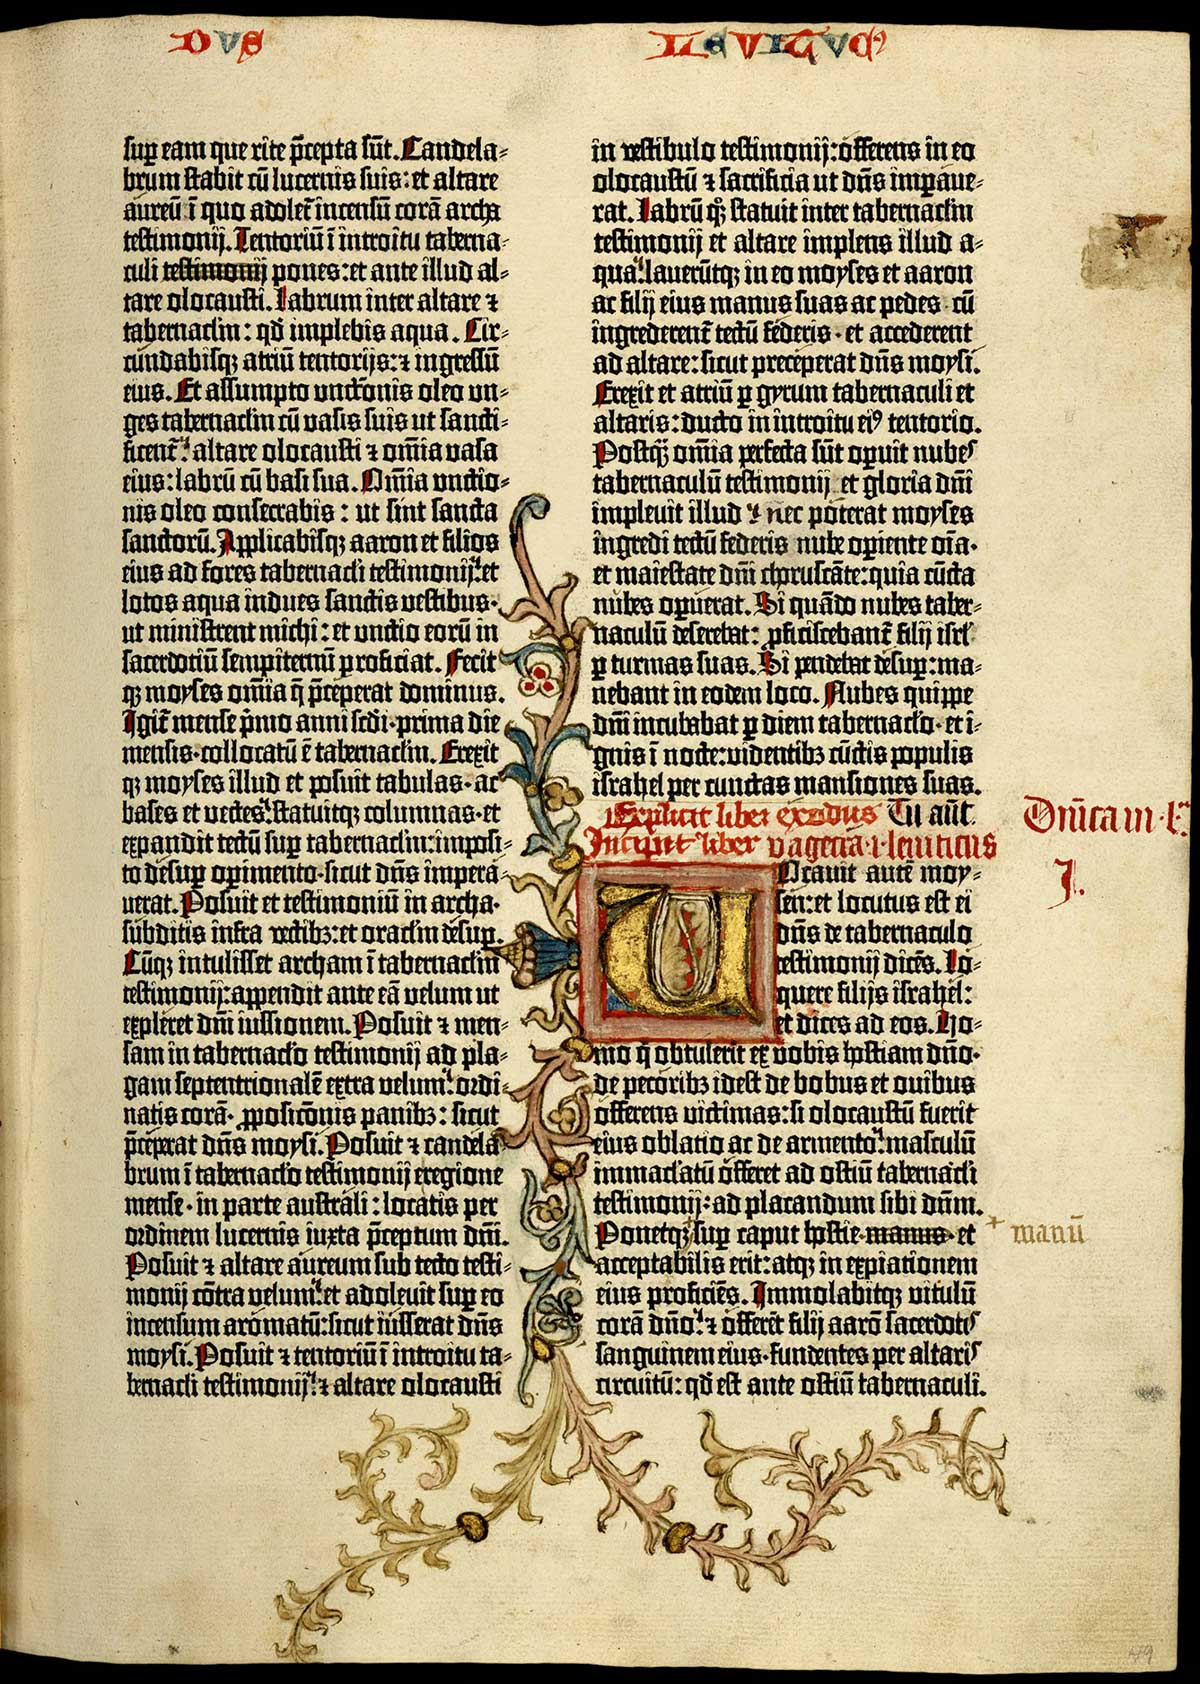 DUS
LEVITICUM
sup eam que rite p̄cepta sūt. Candela-
brum stabit cū lucernis suis: et altare
aureū ī quo adolet᷑ incensū corā archa
testimonij. Tentoriū ī introitu taberna-
culi testimonij pones: et ante illud al-
tare olocausti. Labrum inter altare ⁊
tabernaclm: qd̄ implebis aqua. Cir-
cūndabisqꝫ atriū tentorijs: ⁊ ingressū
eius. Et assumpto unctōnis oleo un-
ges tabernaclm cū vasis suis ut sancti-
ficent᷑: altare olocausti ⁊ om̄ia vasa
eius: labrū cū basi sua. Om̄ia unctio-
nis oleo consecrabis: ut sint sancta
sanctorū. Applicabisqꝫ aaron et filios
eius ad fores tabernacli testimonij: et
lotos aqua indues sanctis vestibus·
ut ministrent michi: et unctio eorū in
sacerdotiū sempiternū proficiat. Fecit
qꝫ moyses om̄ia q̄ p̄ceperat dominus.
Igit᷑ mense p̄mo anni scd̄i· prima die
mensis· collocatū ē tabernaclm. Erexit
qꝫ moyses illud et posuit tabulas· ac
bases et vectes: statuitqꝫ columnas· et
expandit tectū sup tabernaclm: imposi-
to desup operimento· sicut dn̄s impera-
verat. Posuit et testimoniū in archa·
subditis infra vectibꝫ: et oraclm desup.
Cūqꝫ intulisset archam ī tabernaclm
testimonij: appendit ante eā velum ut
expleret dn̄i iussionem. Posuit ⁊ men-
sam in tabernaclo testimonij ad pla-
gam septentrionalē extra velum: ordi-
natis corā· p̱posicōnis panibꝫ: sicut
p̄ceperat dn̄s moysi. Posuit ⁊ candela-
brum ī tabernaclo testimonij eregione
mense· in parte australi: locatis per
ordinem lucernis iuxta p̄ceptum dn̄i.
Posuit ⁊ altare aureum sub tecto testi-
monij cōtra velum: et adolevit sup eo
incensum aromatū: sicut iusserat dn̄s
moysi. Posuit ⁊ tentoriū ī introitu ta-
bernacli testimonij: ⁊ altare olocausti
in vestibulo testimonij: offerens in eo
olocaustū ⁊ sacrificia ut dn̄s impave-
rat. Labrū qꝫ statuit inter tabernaclm
testimonij et altare implens illud a-
qua: laverūtqꝫ in eo moyses et aaron
ac filij eius manus suas ac pedes cū
ingrederent᷑ tectū federis· et accederent
ad altare: sicut preceperat dn̄s moysi.
Erexit et atriū p gyrum tabernaculi et
altaris: ducto in introitu eiꝰ tentorio.
Postqꝫ om̄ia perfecta sūt operuit nubes
tabernaculū testimonij et gloria dn̄i
implevit illud ⁊ nec poterat moyses
ingredi tectū federis nube operiente oīa·
et maiestate dn̄i choruscāte: quia cūcta
nubes operuerat. Si quādo nubes taber-
naculū deserebat: p̱ficiscebant᷑ filij isrl̄
p turmas suas. Si pendebat desup: ma-
nebant in eodem loco. Nubes quippe
dn̄i incubabat p diem tabernaclo· et i-
gnis ī nocte: videntibꝫ cūctis populis
israhel per cunctas mansiones suas.
Explicit liber exodus Tu aūt
Dn̄ica in
Incipit liber vagecra·i·leuiticus
I.
U
Ocavit autē moy-
sen: et locutus est ei
dn̄s de tabernaculo
testimonij dicēs. Lo-
quere filijs israhel:
et dices ad eos. Ho-
mo q̄ obtulerit ex vobis hostiam dn̄o·
de pecoribꝫ idest de bobus et ovibus
offerens victimas: si olocaustū fuerit
eius oblatio ac de armento: masculū
immaclatū offeret ad ostiū tabernacli
testimonij: ad placandum sibi dn̄m.
Ponetqꝫ sup caput hostie manus· et
+ manū
acceptabilis erit: atqꝫ in expiationem
eius proficiēs. Immolabitqꝫ vitulū
corā dn̄o: ⁊ offerēt filij aarō sacerdotes
sanguinem eius· fundentes per altaris
circuitū: qd̄ est ante ostiū tabernaculi.
49